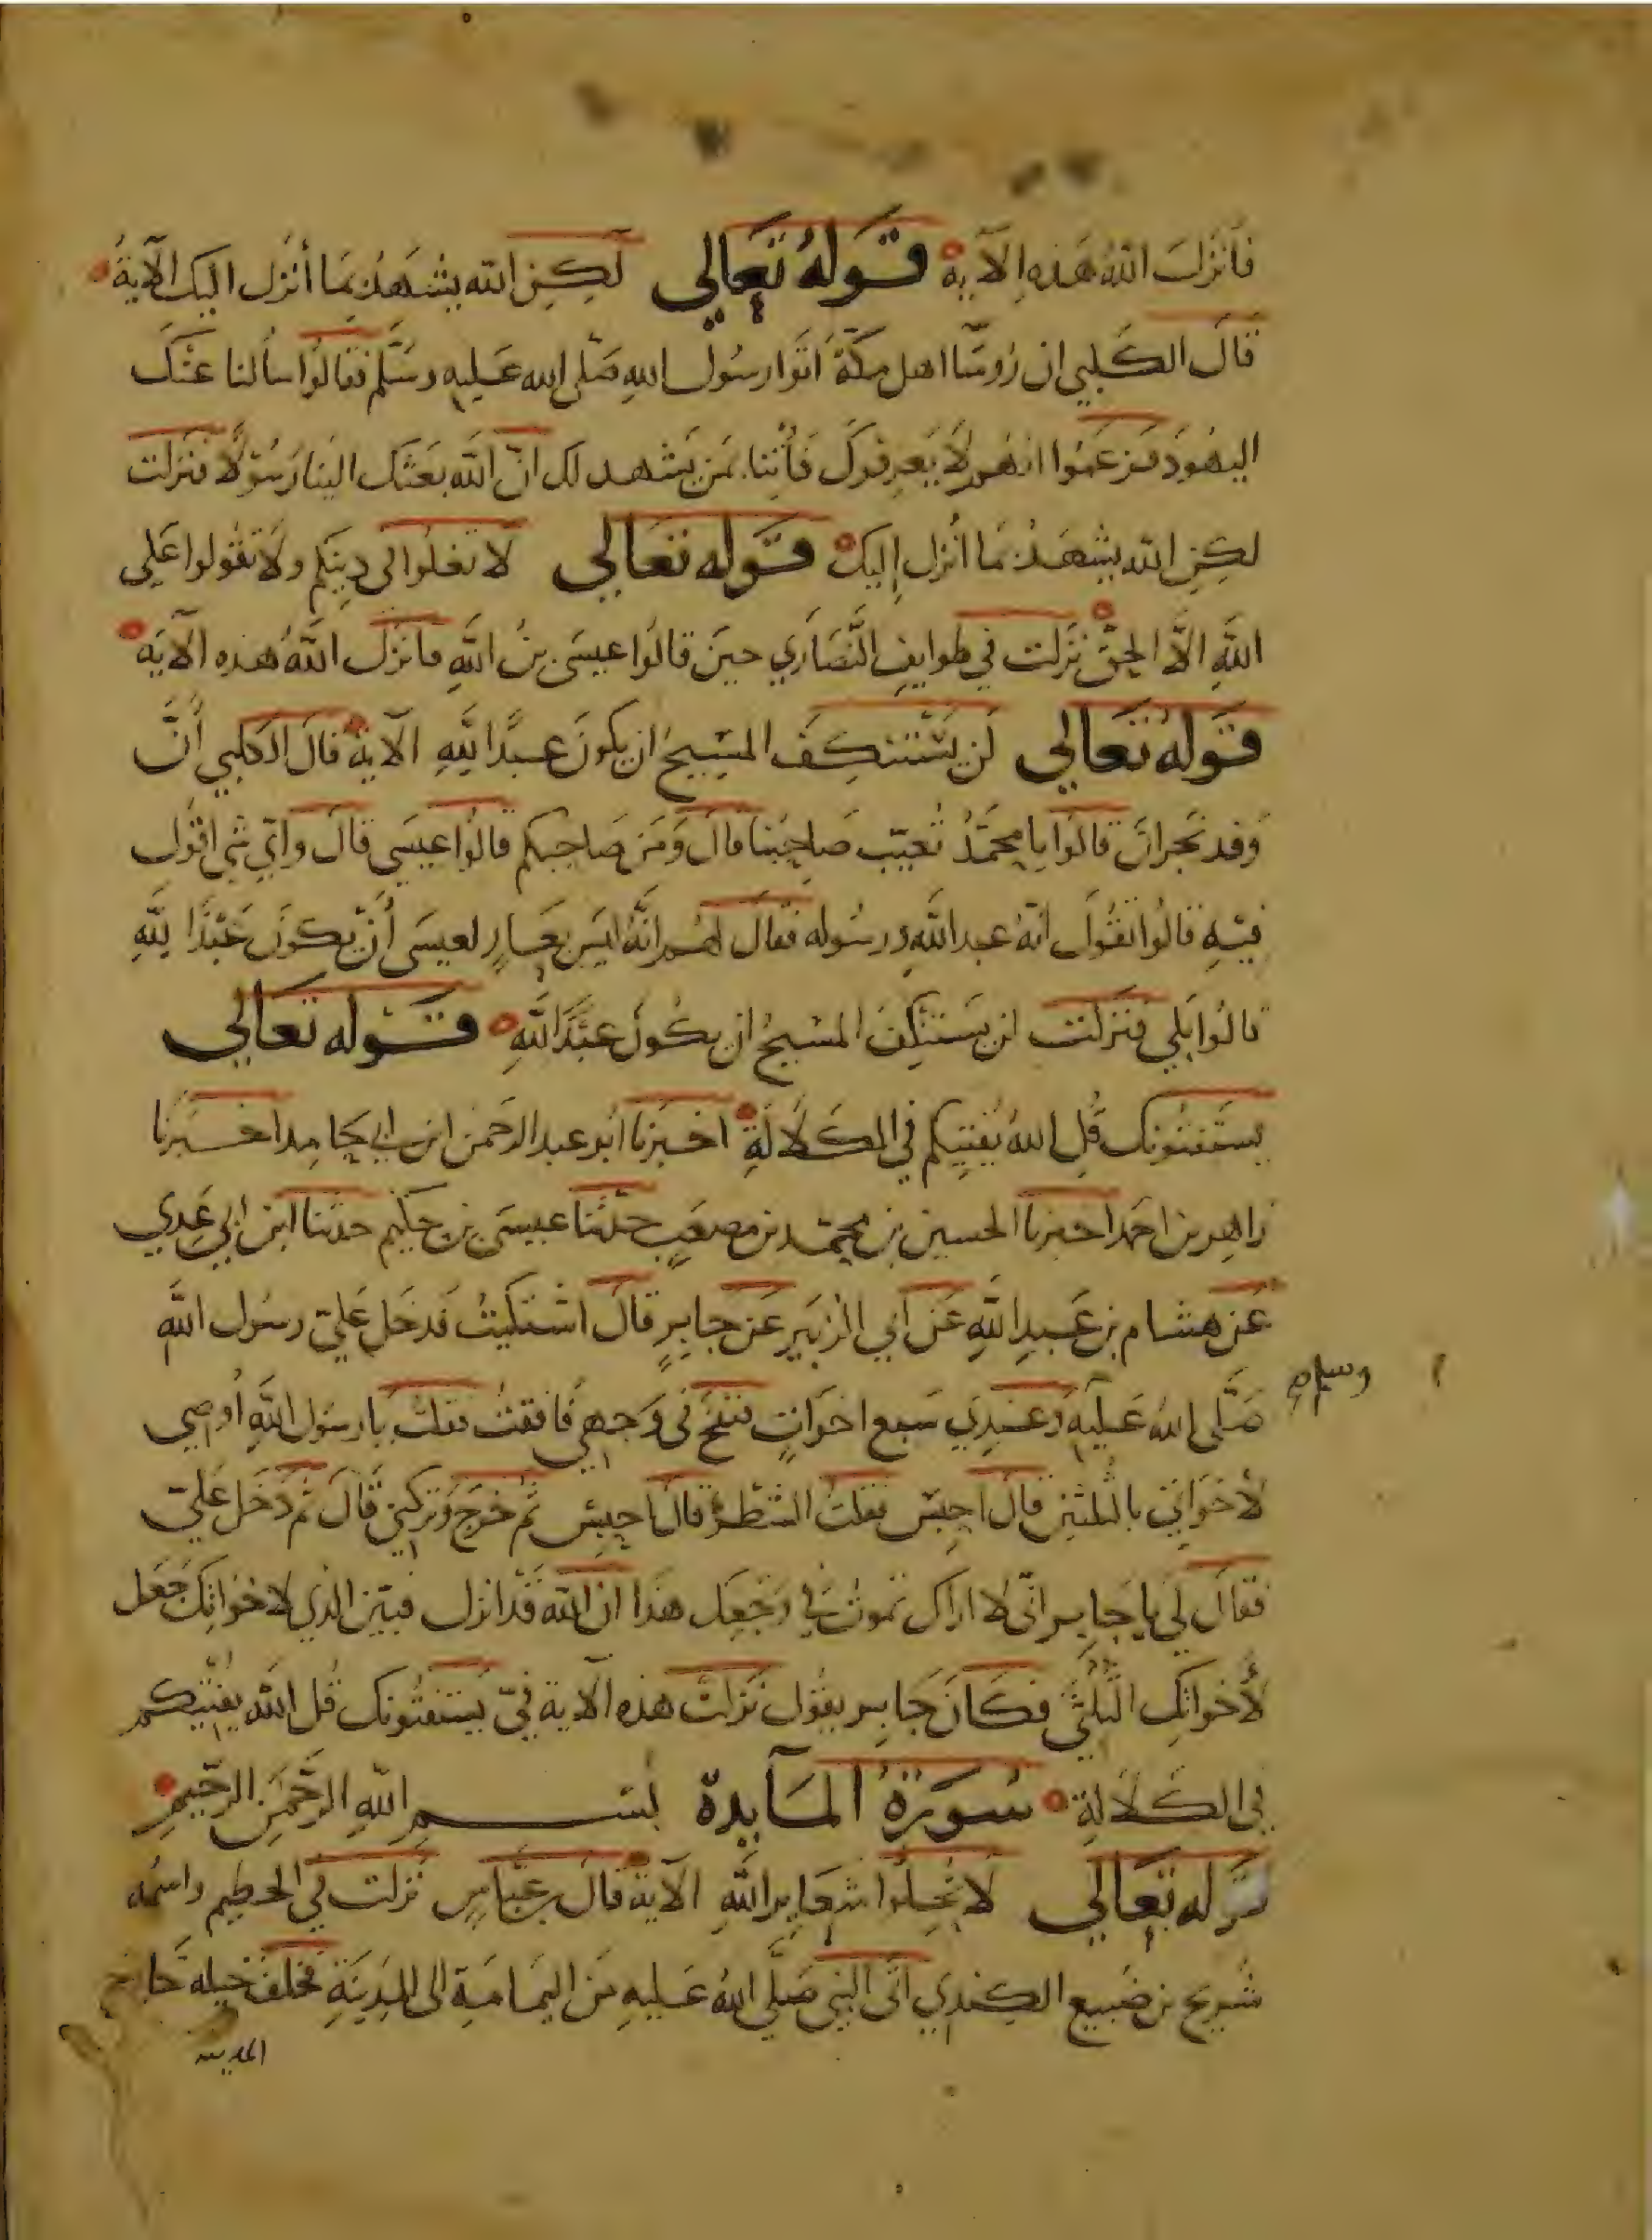 فَأنزَلَ اللهُ هَذه الآية قَولهُ تعَالي لَكِنِ الله يشهَدُ بمَا أنزل اليك الآيةَ
قَالَ الكَلبي ان رُوسَّا اهل مكّةَ اتَوا رسُول اللهِ صَلّى الله عَليهِ وسَلّم فقالوُا سألنا عَنْكَ
اليهُودَ فزعمُوا انهُم لَا يَعرِفونَكَ فَأتِنا بمَن يَشهد لك انّ الله بَعثَك الينا رَسُوْلًا فنزلت
لكِنِ الله يشهَدُ بمَا أُنزل إليكَ قَوله تعَالي لَا تغلُوا في دِينكم ولَا تقُولوا عَلي
اللهِ الَّا الحقَّ نزلت في طوايفِ النَّصَاري حينَ قالُوا عيسَى بنُ اللهِ فأنزَلَ اللهُ هذه الآيَةَ
قَولهُ تعَالي لَن يَسْتنكِفَ المسِيحُ ان يكونَ عبدًا لِلَّهِ الآيةَ قالَ الكلبي أنَّ
وَفد نجرانَ قالوَا يا محمَّدُ تُعيّب صَاحِبَنا قالَ وَمَن صَاحِبكم قالوُا عيسَي قالَ وايّ شي اقوُل
فيْهِ قالُوا تقُولَ انهُ عبد اللهِ ورسُوله فقَالَ لهُم انَّهُ ليسَ بعَارٍ لعيسَى أن يكونَ عَبْدًا لِلَّهِ
قالُوا بَلي فنَزلَت لن يَستنكِفَ المسِيحُ ان يكُونَ عبدًا للهِ قَوله تعَالي
يستَفتُونك قُلِ اللهُ يُفتيكم في الكَلَالَةِ اخبرَنا ابُو عبد الرحَمن ابن ابي حَامِد اخبَرنا
زاهِر بن احمَد اخبرنا الحسين بن محمّد بن مصعَبٍ حدّثنا عيسَى بن حكيم حدثنا ابن ابي عَدِي
عَن هشام بن عَبدِ اللهِ عَن أبي الزبَير عَن جَابِرٍ قَالَ اشتكَيتُ فدخَل عَليّ رسُول اللهِ
صَلَّى اللهُ عَليهِ وَعندِي سَبع اخوَاتٍ فنفخَ في وَجهي فافقتُ فقلتُ يا رسُول اللهِ أُوصِي
وسلم صح
لأخوَاتِي بالثلثينِ قالَ اجلِس فقلتُ الشطرُ قالَ اجلِس ثم خَرجَ وتركني قَالَ ثم دَخل عَليّ
فقالَ لي يا جَابِر انّي لا اراكَ تموتُ في وَجعِك هَذا ان الله قَد انزل فبيّن الذي لاخوَاتِكَ جَعَل
لأخواتِك الثُّلثَينِ فكَانَ جَابِر يقوُل نَزلَت هَذه الآية فيّ يَستفتُونك قُل الله يُفتيكم
في الكَلَالَةِ سُورَةُ المَآيدة بسْمِ اللهِ الرَّحمَنِ الرَّحيمِ
قَوله تعَالي لَا تُحِلوُا شعَايِر اللهِ الآية قالَ بن عبّاسٍ نزلت في الحطيم واسمُه
شُريح بن ضُبيع الكِندي اتَى النبي صَلَّى اللهُ عَليهِ مَن اليمَامَة الى المدِينَةِ فخلفَ خيله خَارج
المدينه